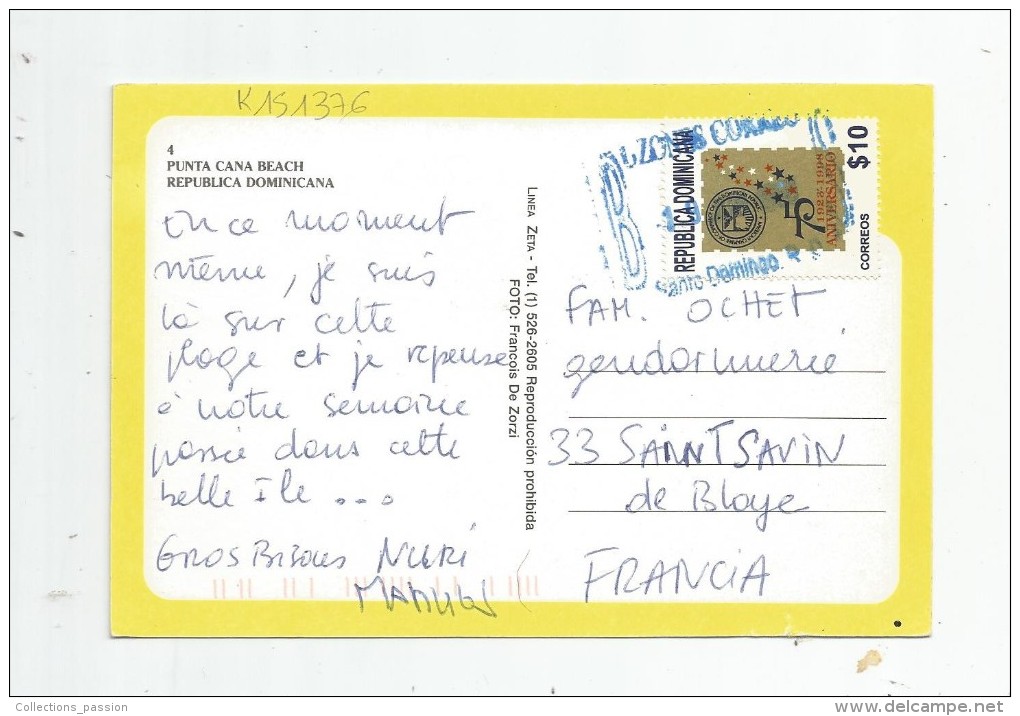 K151376
4
PUNTA CANA BEACH
REPUBLICA DOMINICANA
En ce moment
même, je suis
là sur cette
plage et je repense
à notre semaine
passée dans cette
belle île ...
GROS BISOUS NURI
LINEA ZETA - Tel. (1) 526-2605 Reproducción prohibida
FOTO: Francois De Zorzi
Santo Domingo
REPUBLICA DOMINICANA
75
1923-1998
ANIVERSARIO
$10
CORREOS
FAM. OCHET
gendarmerie
33 SAINT SAVIN
de Blaye
FRANCIA
Collections_passion
delcampe.net